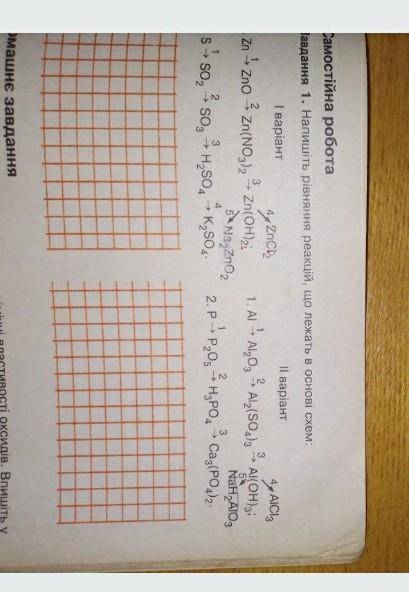 Самостійна робота
Завдання 1. Напишіть рівняння реакцій, що лежать в основі схем:
І варіант
4 ZnCl2
Zn 1→ ZnO 2→ Zn(NO3)2 3→ Zn(OH)2;
5 Na2ZnO2
S 1→ SO2 2→ SO3 3→ H2SO4 4→ K2SO4.
ІІ варіант
4 AlCl3
1. Al 1→ Al2O3 2→ Al2(SO4)3 3→ Al(OH)3;
5 NaH2AlO3
2. P 1→ P2O5 2→ H3PO4 3→ Ca3(PO4)2.
омашнє завдання
властивості оксидів. Впишіть у